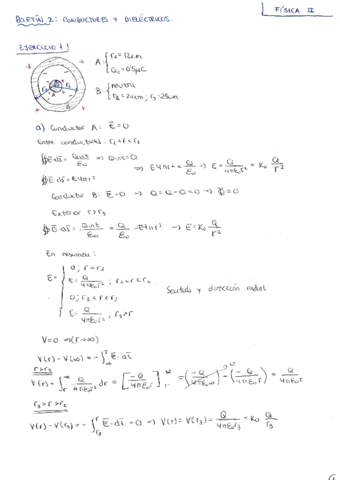 BOLETÍN 2: CONDUCTORES Y DIELÉCTRICOS.
FÍSICA II
EJERCICIO 1
A: { r₁=12cm
Q₀=0'5μC
B: { neutro
r₂=24cm; r₃=25cm.
a) Conductor A: E̅=0
Entre conductores: r₁<r<r₂
∯E̅·ds̅ = Qint/ε₀ → Qint=Q
∯E̅·ds̅ = E4πr²
⇒ E4πr² = Q/ε₀ → E = Q/4πε₀r² = K₀ Q/r²
Conductor B: E̅=0 → Q=Q-Q=0 → ∯=0
Exterior r>r₃
∯E̅·ds̅ = Qint/ε₀ = Q/ε₀ = E4πr² → E=K₀ Q/r²
En resumen:
E= { 0; r<r₁
E= Q/4πε₀r² ; r₁<r<r₂
0; r₂<r<r₃
E= Q/4πε₀r² ; r₃>r
Sentido y dirección radial
V=0 ⇒(r→∞)
V(r)-V(∞) = -∫ E̅·dl̅
r>r₃
V(r) = ∫ Q/4πε₀r² dr = [-Q/4πε₀r] = (-Q/4πε₀∞) - (-Q/4πε₀r) = Q/4πε₀r
r₃>r>r₂
V(r)-V(r₃) = -∫ E̅·dl̅ = 0 → V(r) = V(r₃) = Q/4πε₀r₃ = K₀ Q/r₃